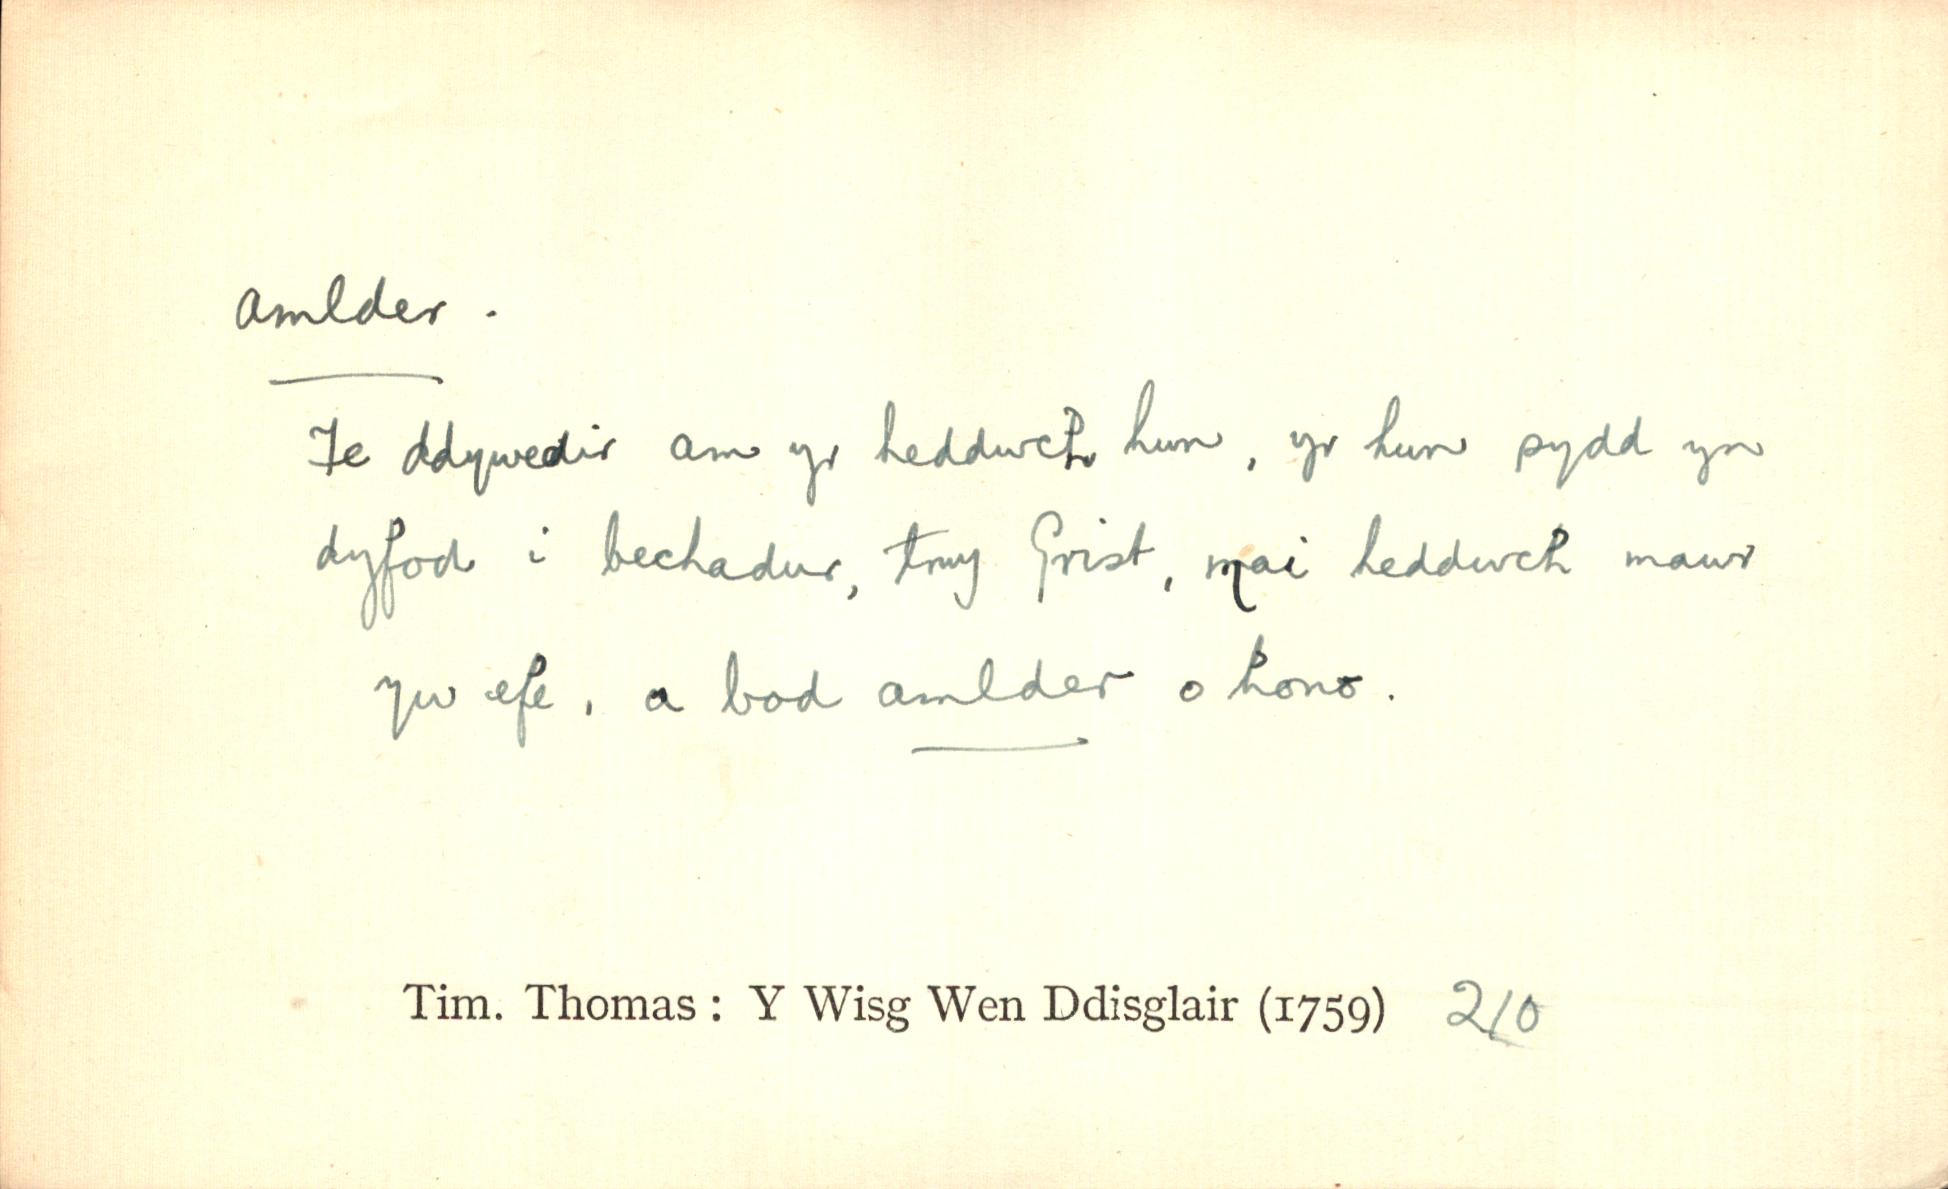 amlder.
Fe ddywedir am yr heddwch hwn, yr hwn sydd yn
dyfod i bechadur, trwy Grist, mai heddwch mawr
yw efe, a bod amlder o hono.
Tim. Thomas: Y Wisg Wen Ddisglair (1759) 210